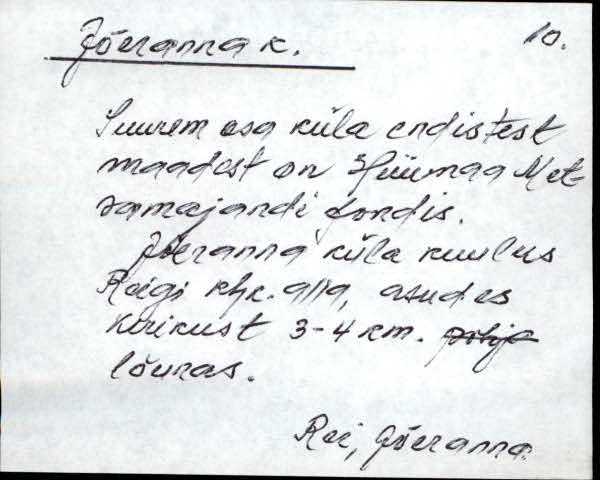 Jõeranna k. 10.
Suurem osa küla endistest
maadest on Hiiumaa Met-
samajandi fondis.
Jõeranna küla kuulus
Reigi khk. alla, asudes
kirikust 3-4 km. põhja
lõunas.
Rei, Jõeranna.